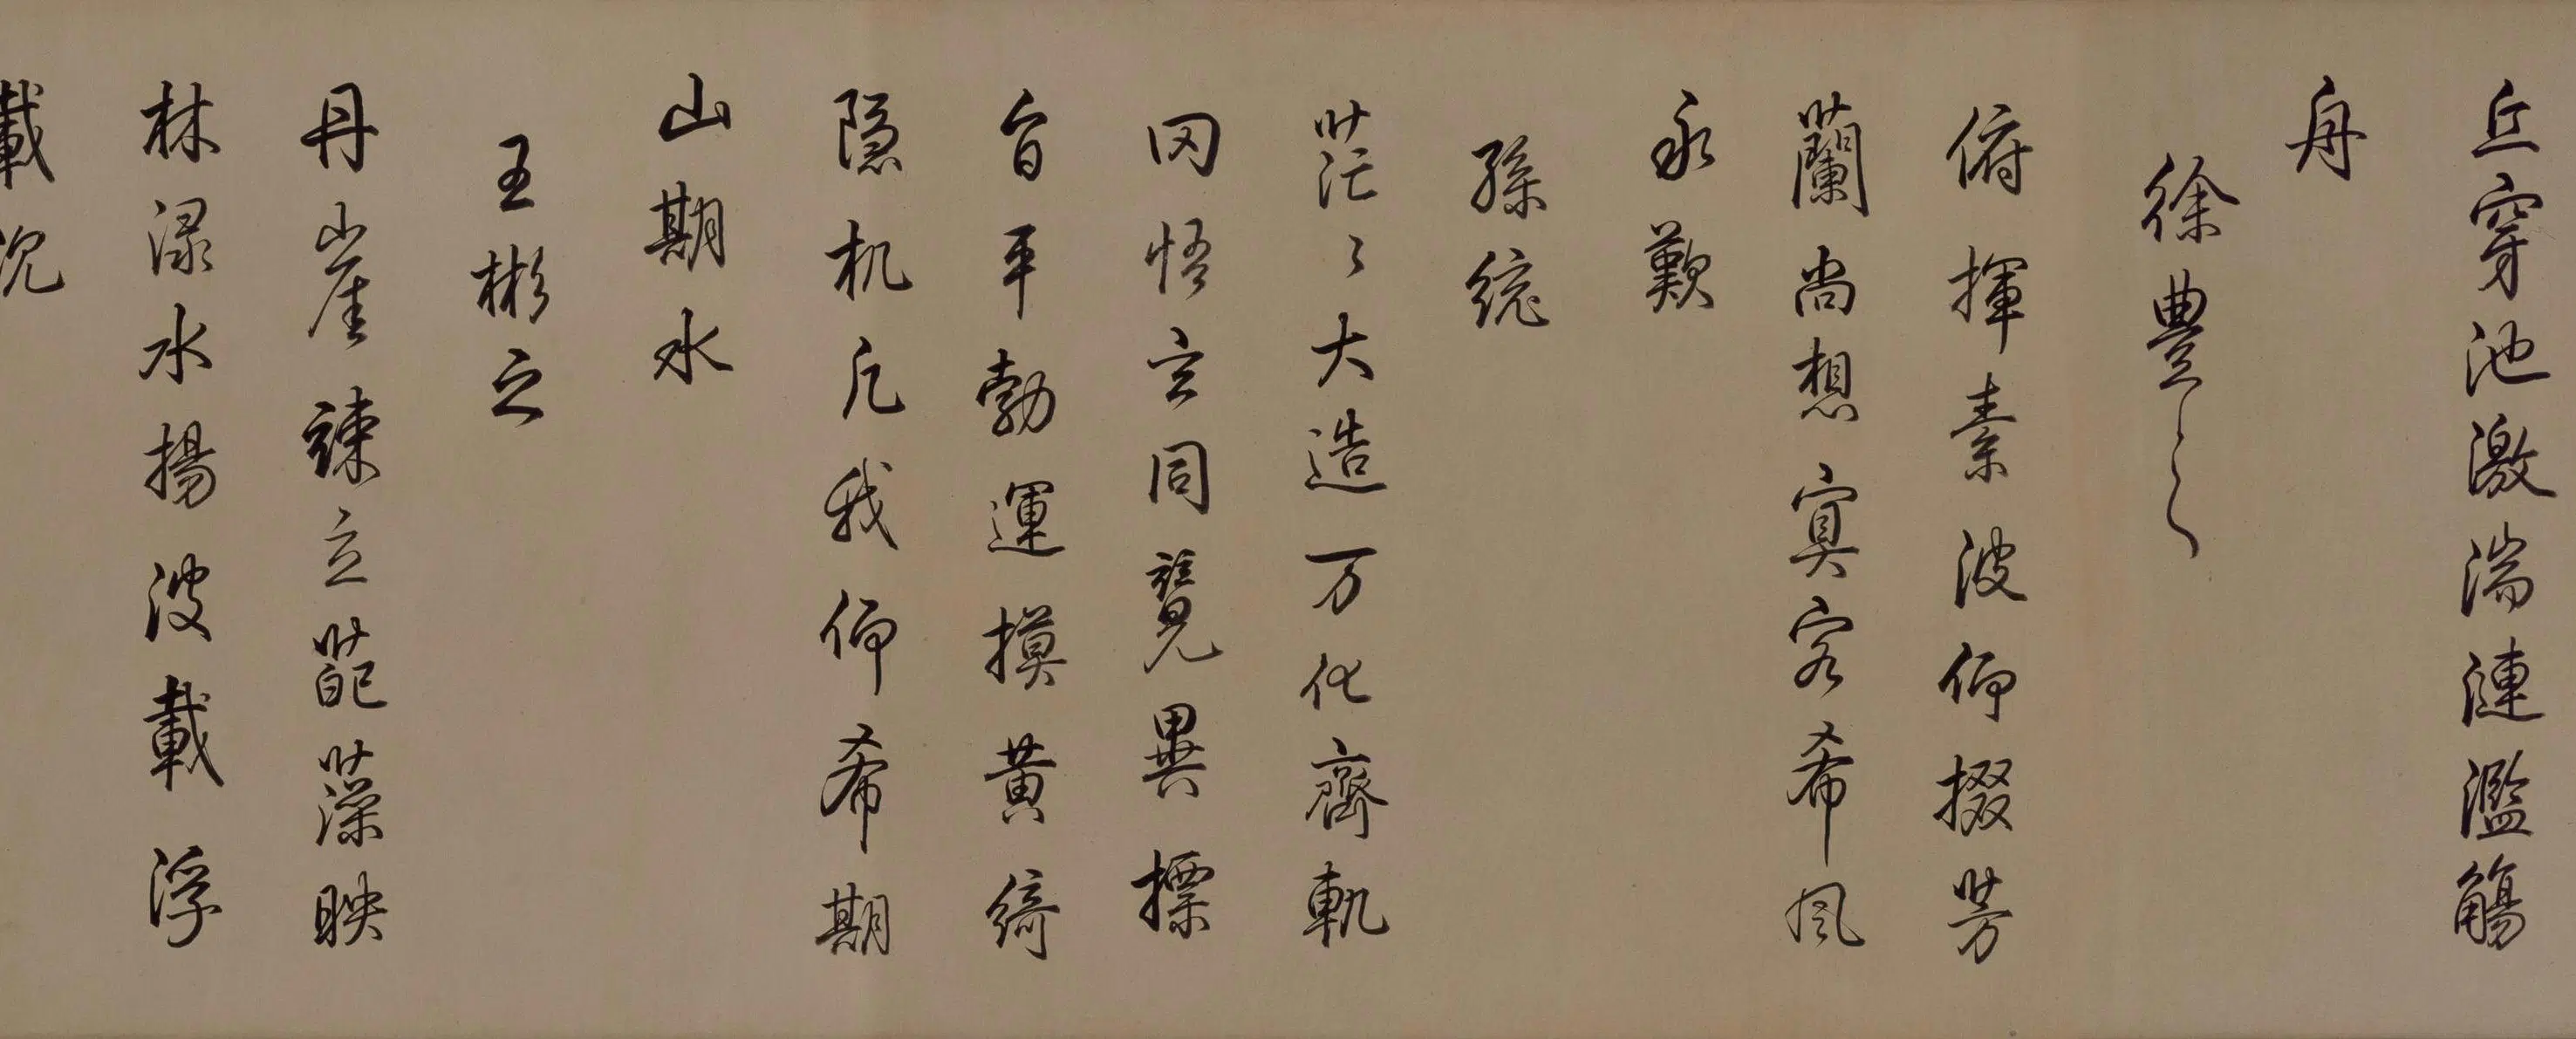 丘穿池激湍漣濫觴
舟
徐豊之
俯揮素波仰掇芳
蘭尚想寞客希風
永歎
孫統
茫〻大造万化齊軌
罔悟玄同覧異摽
旨平勃運摸黄綺
隐机凡我仰希期
山期水
王彬之
丹崖竦立葩藻映
林渌水揚波載浮
載沉